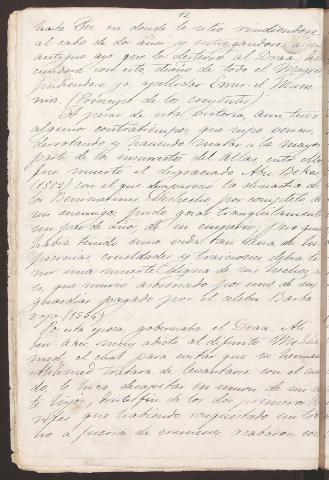 12
hasta Fez en donde le sitio rindiendose
al cabo de dos años y entregandose a un
antiguo ayo que lo destierra al Draa, ha
ciendose con esto dueño de todo el Magreb
pudiendose ya apellidar Emir el Mume
nin (Principe de los creyentes)
A pesar de esta victoria, aun tuvo
algunos contratiempos que supo vencer,
derrotando y haciendo matar a la mayor
parte de los insurrectos del Atlas, entre ellos
fue muerto el desgraciado Abu Beker
(1552) con el que desaparece la dinastia de
los Benimerines. Deshecho por completo de
sus enemigos, pudo gozar tranquilamente
un par de años, de su imperio, pero quien
habia tenido una vida tan llena de
crueldades y traiciones debia te
ner una muerte digna de sus hechos,
lo que murió asesinado por uno de sus
guardias pagado por el celebre Barba
roja (1556)
En esta epoca gobernaba el Draa Ali
ben Aker, muy adicto al difunto Moha
med, el cual para evitar que su hermano
Ahhmed tratara de levantarse con el man
do, le hizo decapitar en union de
hijos, triste fin de los dos primeros
rifes que habiendo conquistado un tro
no a fuerza de crimenes, acabaron con